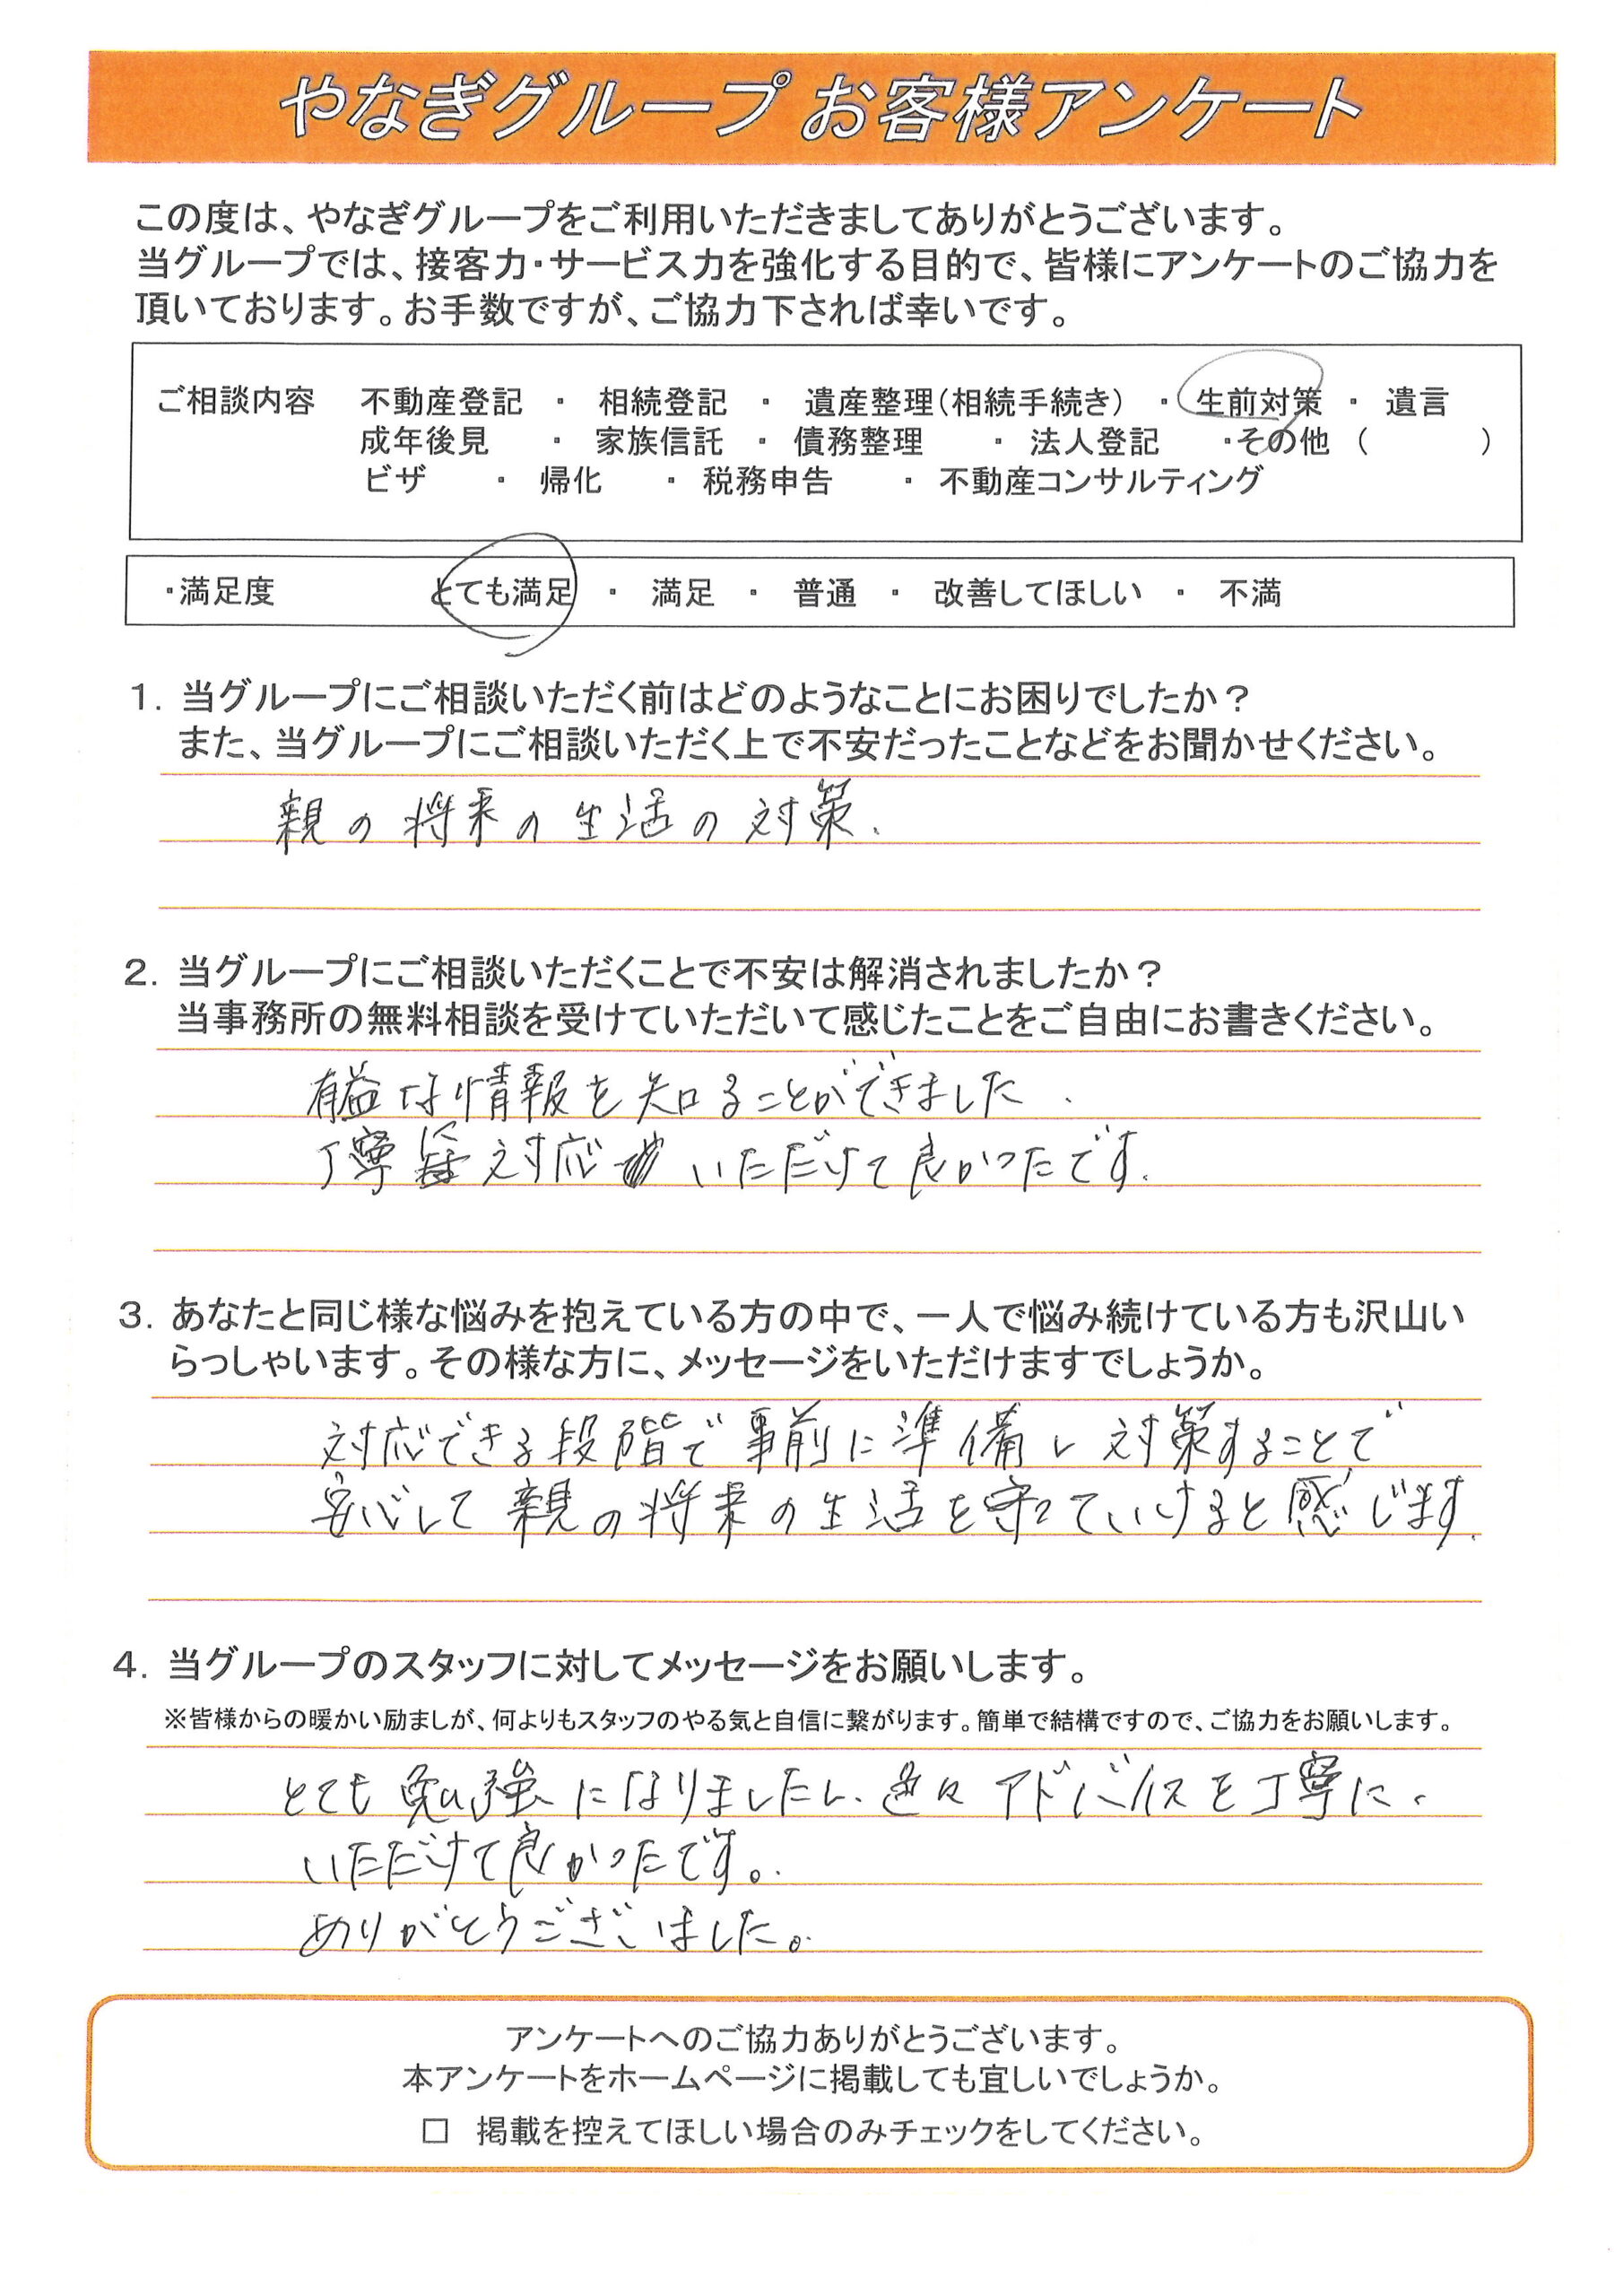 やなぎグループ お客様アンケート
この度は、やなぎグループをご利用いただきましてありがとうございます。
当グループでは、接客力・サービス力を強化する目的で、皆様にアンケートのご協力を
頂いております。お手数ですが、ご協力下されば幸いです。
ご相談内容 不動産登記 ・ 相続登記 ・ 遺産整理(相続手続き) ・ 生前対策 ・ 遺言
成年後見 ・ 家族信託 ・ 債務整理 ・ 法人登記 ・その他 ( )
ビザ ・ 帰化 ・ 税務申告 ・ 不動産コンサルティング
・満足度 とても満足 ・ 満足 ・ 普通 ・ 改善してほしい ・ 不満
1. 当グループにご相談いただく前はどのようなことにお困りでしたか？
また、当グループにご相談いただく上で不安だったことなどをお聞かせください。
親の将来の生活の対策.
2. 当グループにご相談いただくことで不安は解消されましたか？
当事務所の無料相談を受けていただいて感じたことをご自由にお書きください。
有益な情報を知ることができました.
丁寧 対応 いただけて良かったです.
3. あなたと同じ様な悩みを抱えている方の中で、一人で悩み続けている方も沢山い
らっしゃいます。その様な方に、メッセージをいただけますでしょうか。
対応できる段階で事前に準備し対策することで
安心して親の将来の生活を守っていけると感じます.
4. 当グループのスタッフに対してメッセージをお願いします。
※皆様からの暖かい励ましが、何よりもスタッフのやる気と自信に繋がります。簡単で結構ですので、ご協力をお願いします。
とても勉強になりましたし、色々アドバイスを丁寧に、
いただけて良かったです。
ありがとうございました。
アンケートへのご協力ありがとうございます。
本アンケートをホームページに掲載しても宜しいでしょうか。
□ 掲載を控えてほしい場合のみチェックをしてください。